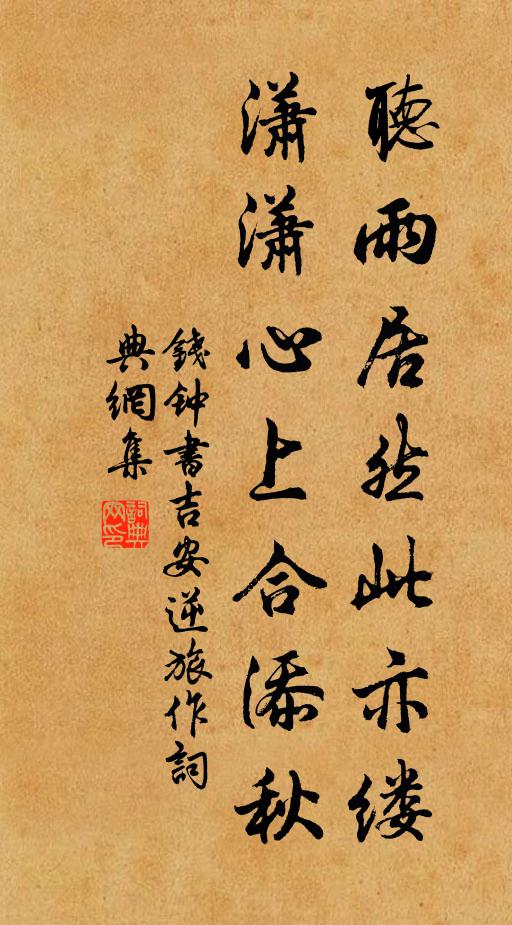 聽雨居然此亦缕
瀟瀟心上合添秋
錢钟書吉安逆旅作詞
典網集
詞典
网印